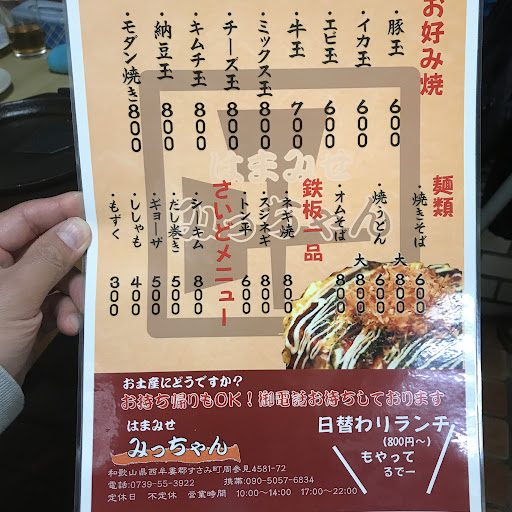 お好み焼
・豚玉 600
・イカ玉 600
・エビ玉 600
・牛玉 700
・ミックス玉 800
・チーズ玉 800
・キムチ玉 800
・納豆玉 800
・モダン焼き 800
はまみせ
みっちゃん
麺類
・焼きそば 600
大 800
・焼うどん 600
大 800
・オムそば 800
鉄板一品
・ネギ焼 800
・スジネギ 800
・トン平 600
さいどメニュー
・シーキム 800
・だし巻き 500
・ギョーザ 500
・ししゃも 400
・もずく 300
お土産にどうですか?
お持ち帰りもOK!御電話お待ちしております
はまみせ
みっちゃん
和歌山県西牟婁郡すさみ町周参見4581-72
電話:0739-55-3922 携帯:090-5057-6834
定休日 不定休 営業時間 10:00〜14:00 17:00〜22:00
日替わりランチ
(800円〜)
もやって
るでー